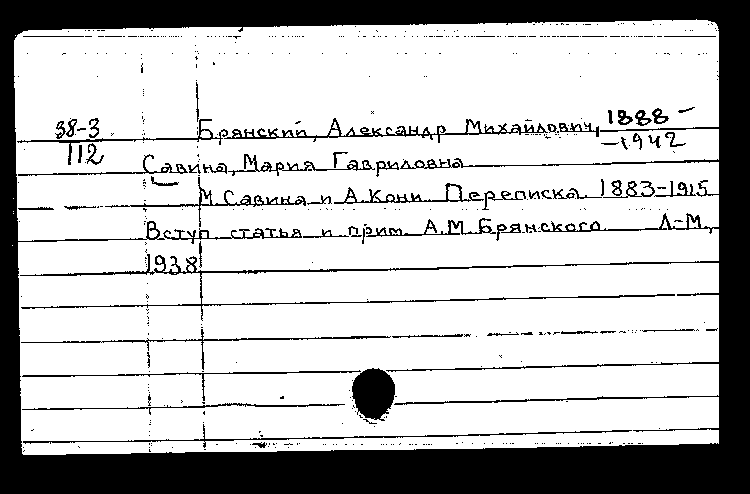 38-3
112
Брянский, Александр Михайлович, 1888-
-1942
Савина, Мария Гавриловна
М. Савина и А. Кони. Переписка. 1883-1915
Вступ. статья и прим. А.М. Брянского. Л-М.,
1938